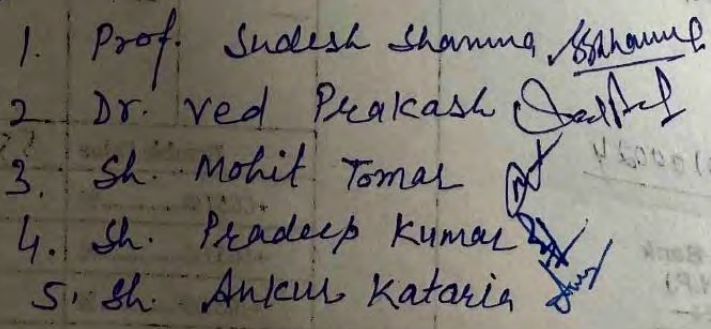 1. Prof. Sudesh Sharma
2 Dr. Ved Prakash
3. Sh. Mohit Tomar
4. Sh. Pradeep Kumar
5. Sh. Ankur Kataria